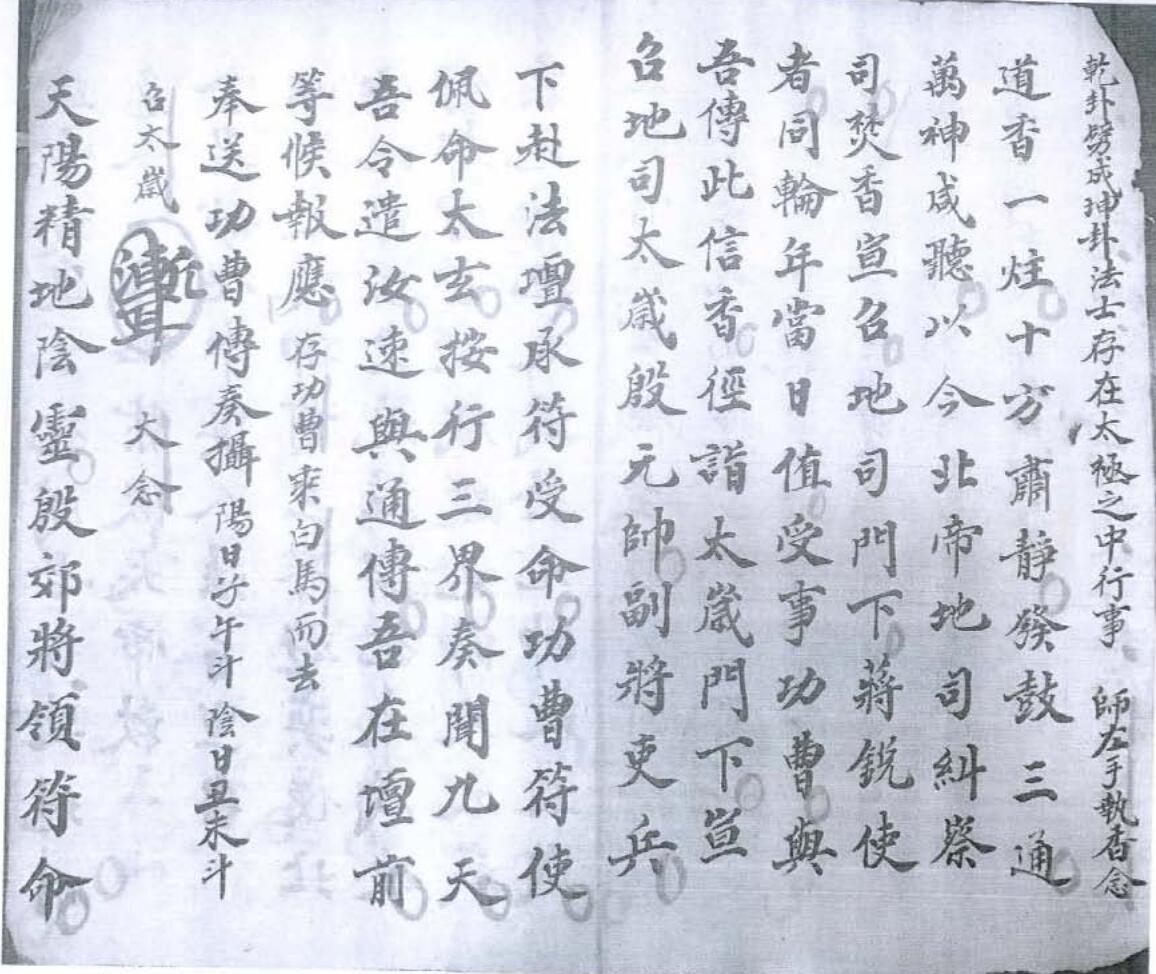 乾卦劈成坤卦法士存在太極之中行事　師左手執香念
道香一炷十方肅靜發鼓三通
萬神咸聽以今北帝地司糾察
司焚香宣召地司門下蔣銳使
者同輪年當日值受事功曹與
吾傳此信香徑詣太歲門下宣
召地司太歲殷元帥副將吏兵
下赴法壇承符受命功曹符使
佩命太玄按行三界奏聞九天
吾令遣汝速與通傳吾在壇前
等候報應存功曹乘白馬而去
奉送功曹傳奏攝陽日子午斗　陰日丑未斗
召太歲　大念
天陽精地陰靈殷郊將領符命